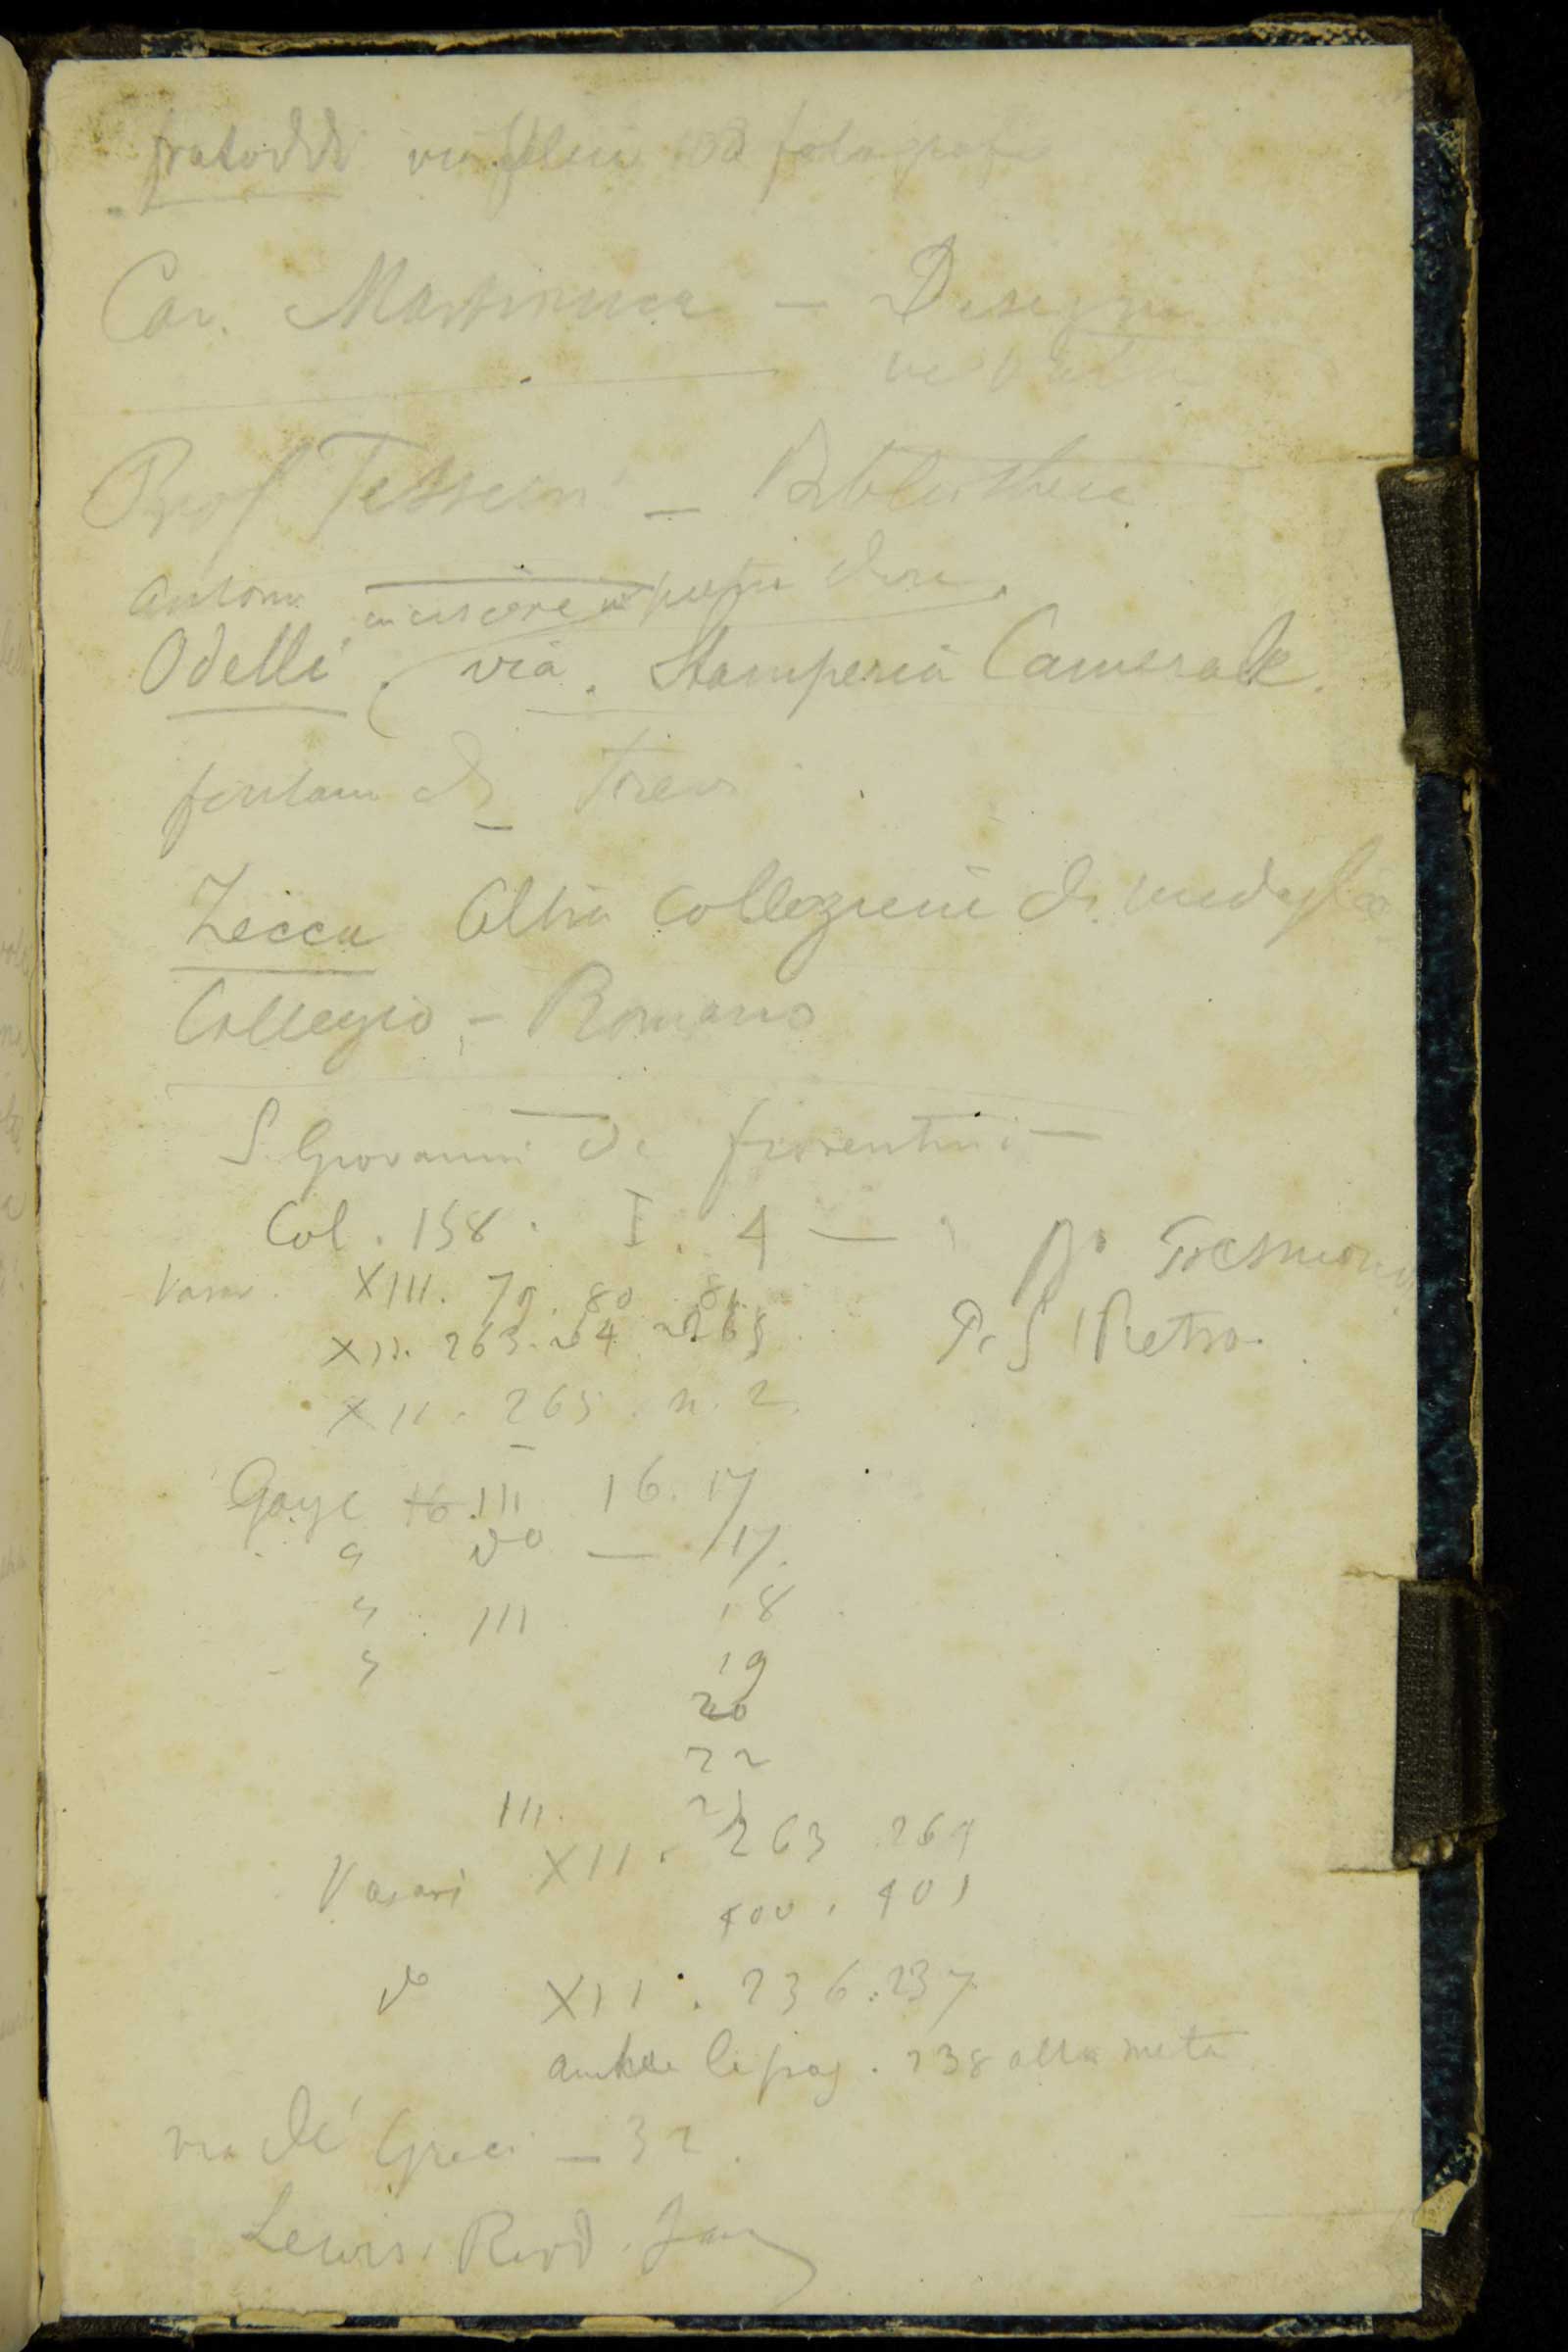 fratoddi via
Cav. Martinucci — Disegni
Prof Tessieri — Bibliotheca
Antonio incisore in pietre dure.
Odelli, via. Stamperia Camerale.
fontana di Trevi
Zecca Altra Collezione di medaglie
Collegio - Romano
S. Giovanni de fiorentini —
Col. 158. I. 4 —
Vasar. XIII. 79. 80. 81.
XII. 263. 264 265
P. S Pietro.
XII. 265. n. 2.
Gaye to. III 16. 17
" do — 17.
" III 18
" 19
20
22
III.
Vasari XII. 263 264
400. 401
do XII. 236. 237
anche la pag. 238 alla metà
via de' Greci — 32.
Lewis.